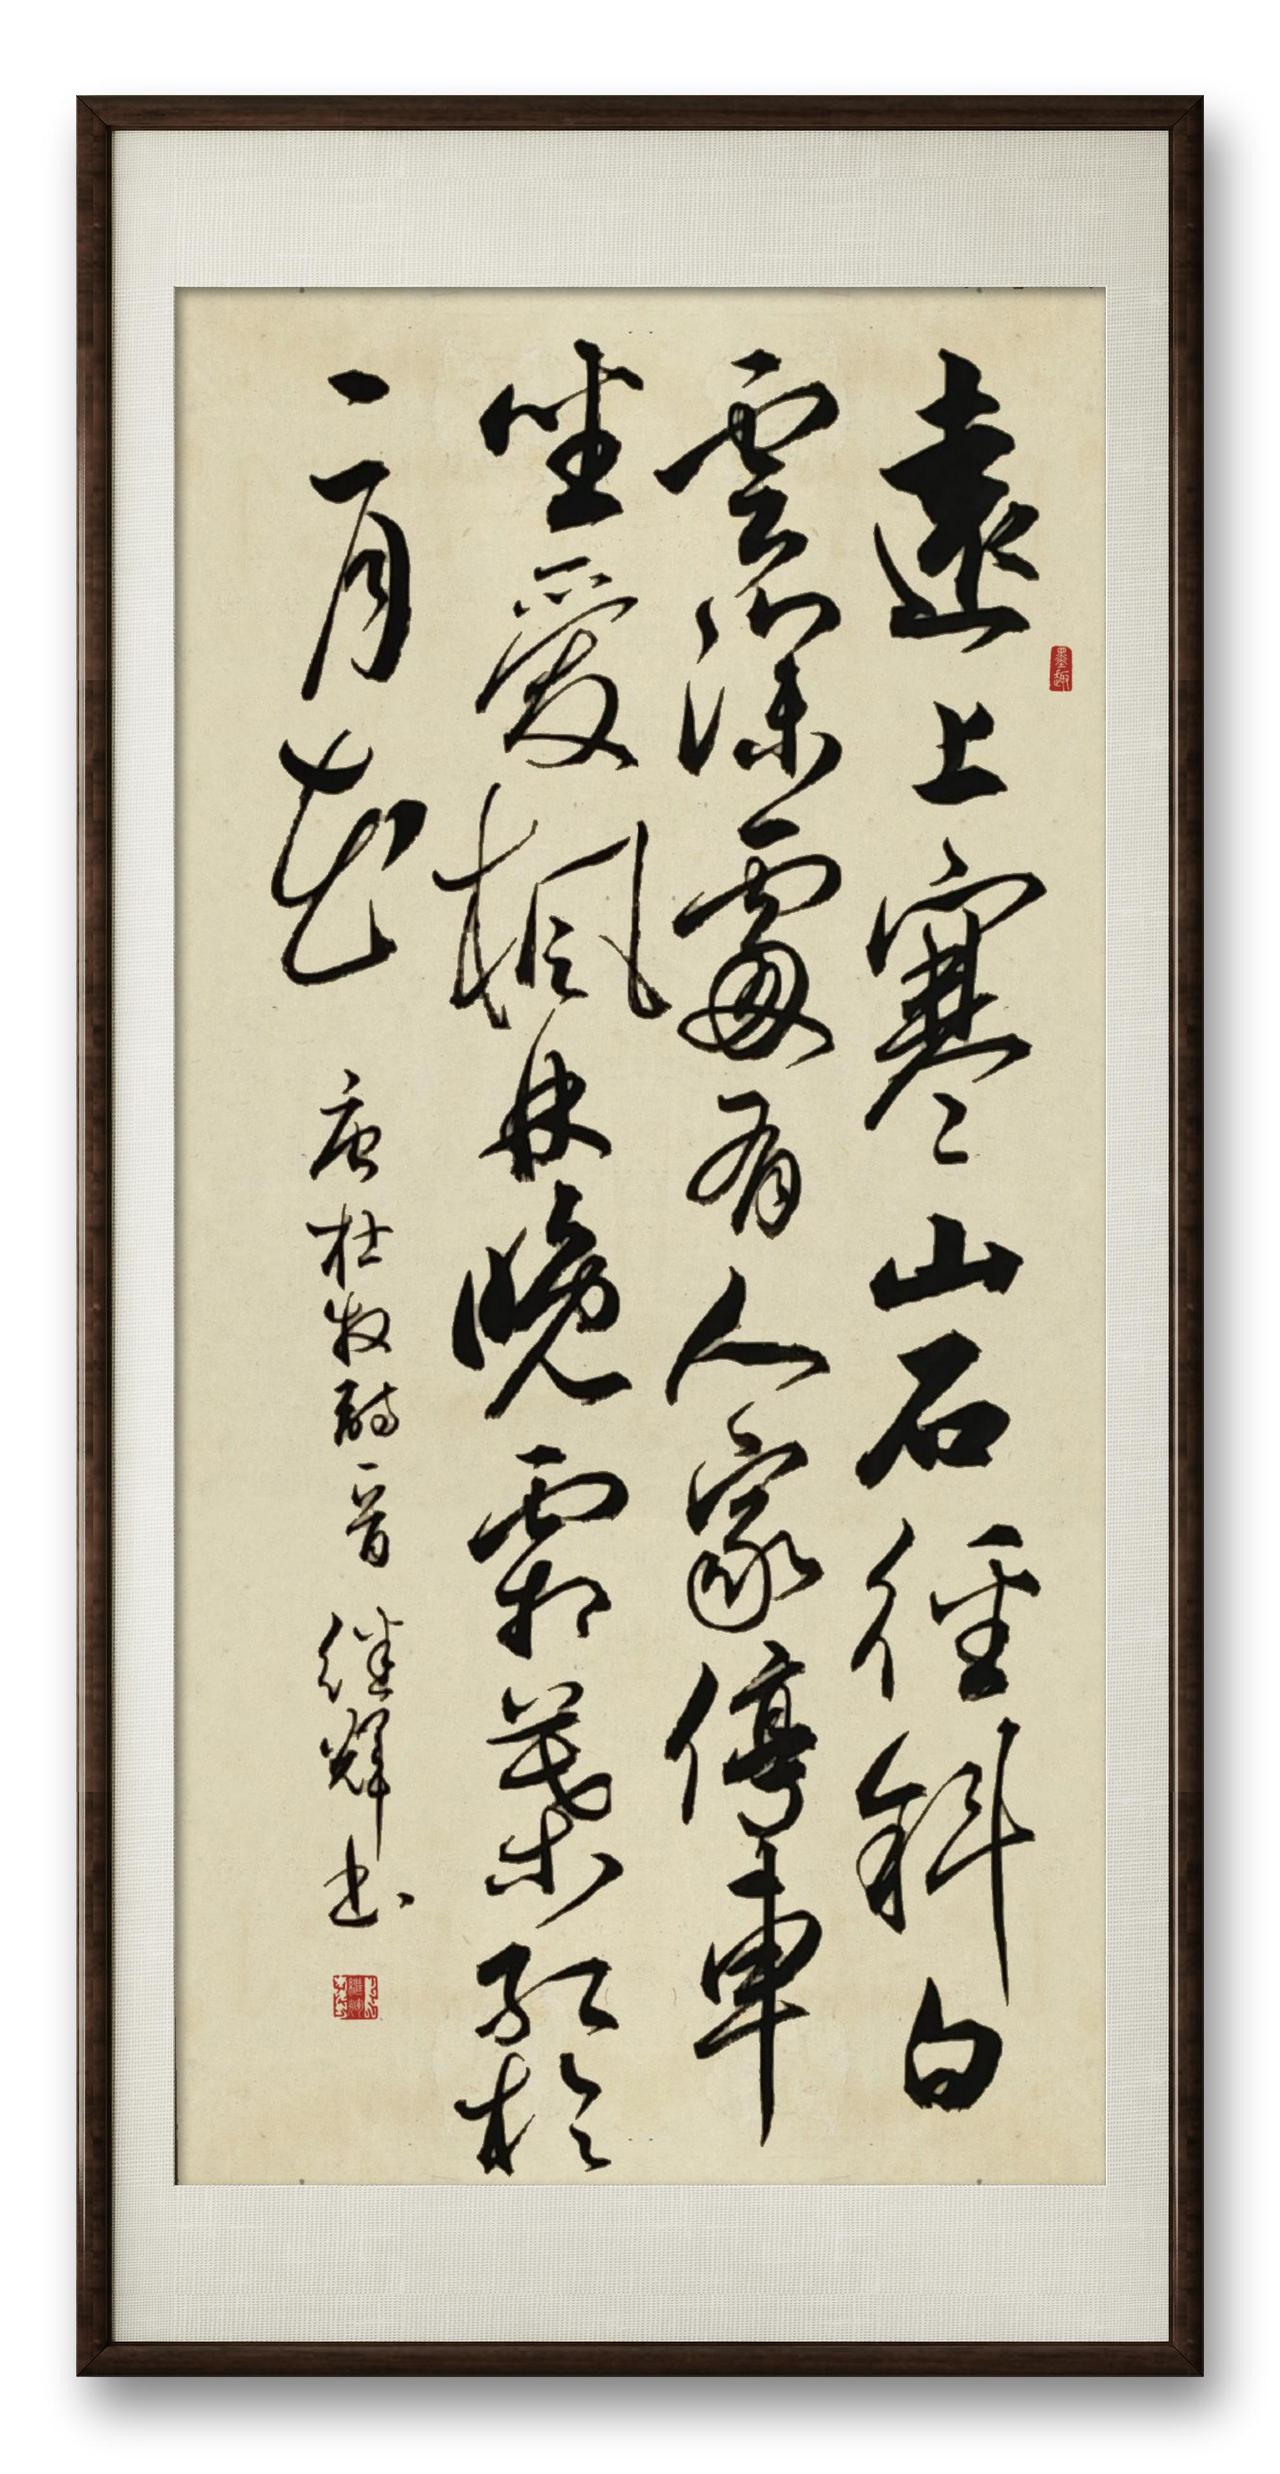 遠上寒山石徑斜白
雲深處有人家停車
坐愛楓林晚霜葉紅於
二月花 唐杜牧詩一首 继輝书
墨趣